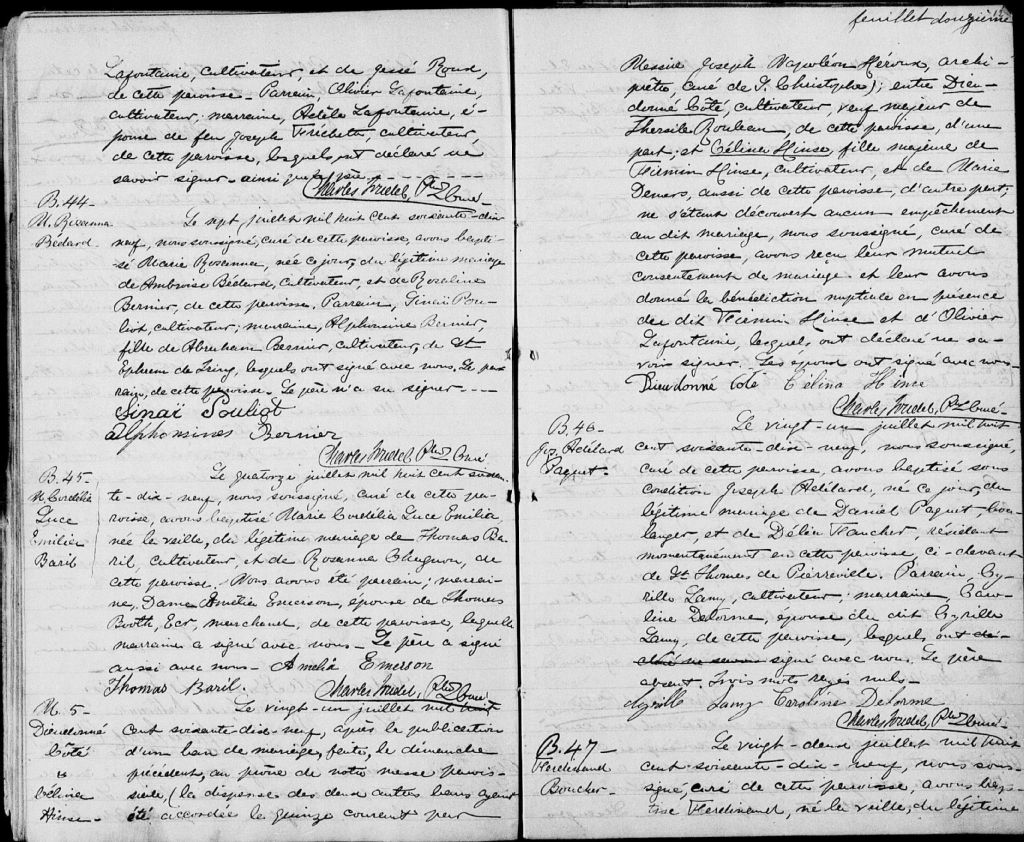 Lafontaine, cultivateur, et de Jessé Roux,
de cette paroisse. Parrain, Olivier Lafontaine,
cultivateur; marraine, Adèle Lafontaine, é-
pouse de feu Joseph Frichette, cultivateur,
de cette paroisse, lesquels ont déclaré ne
savoir signer - ainsi que le père -
Charles Trudel, Ptre Curé -
B. 44 -
M. Rosanna
Bédard -
Le sept juillet mil huit cent soixante-dix-
neuf, nous soussigné, curé de cette paroisse, avons bapti-
sé Marie Rosanna, née ce jour, du légitime mariage
de Ambroise Bédard, cultivateur, et de Rosaline
Bernier, de cette paroisse. Parrain, Sinaï Pou-
liot, cultivateur; marraine, Alphonsine Bernier,
fille de Abraham Bernier, cultivateur, de St
Ephrem de Tring, lesquels ont signé avec nous. Le par-
rain, de cette paroisse. Le père n'a su signer - - - -
Sinaï Pouliot
Alphonsines Bernier
Charles Trudel, Ptre Curé
B. 45 -
M. Cordélia
Luce
Emilia
Baril
Le quatorze juillet mil huit cent soixan-
te-dix-neuf, nous soussigné, curé de cette pa-
roisse, avons baptisé Marie Cordélia Luce Emilia
née la veille, du légitime mariage de Thomas Ba-
ril, cultivateur, et de Rosanna Thugnon, de
cette paroisse. Nous avons été parrain; marrai-
ne, Dame Amélia Emerson, épouse de Thomas
Booth, Ecr, marchand, de cette paroisse, laquelle
marraine a signé avec nous. Le père a signé
aussi avec nous - Amelia Emerson
Thomas Baril.
Charles Trudel, Ptre Curé
M. 5 -
Dieudonné
Côté
&
Célina
Hinse -
Le vingt-un juillet mil huit
cent soixante-dix-neuf, après la publication
d'un ban de mariage, faite, le dimanche
précédent, au prône de notre messe parois-
siale, (la dispense des deux autres bans ayant
été accordée le quinze courant par
feuillet douzième
Messire Joseph Napoléon Héroux, archi-
prêtre, curé de St Christophe); entre Dieu-
donné Côté, cultivateur, veuf majeur de
Thersile Rouleau, de cette paroisse, d'une
part; et Célina Hinse, fille majeure de
Firmin Hinse, cultivateur, et de Marie
Demers, aussi de cette paroisse, d'autre part;
ne s'étant découvert aucun empêchement
au dit mariage, nous soussigné, curé de
cette paroisse, avons reçu leur mutuel
consentement de mariage et leur avons
donné la bénédiction nuptiale en présence
du dit Firmin Hinse et d'Olivier
Lafontaine, lesquels ont déclaré ne sa-
voir signer. Les époux ont signé avec nous
Dieudonné Côté Célina Hince
Charles Trudel, Ptre Curé -
B. 46 -
Jos. Adélard
Paquet -
Le vingt-un juillet mil huit
cent soixante-dix-neuf, nous soussigné,
curé de cette paroisse, avons baptisé sous
condition Joseph Adélard, né ce jour, du
légitime mariage de Daniel Paquet, bou-
langer, et de Délia Faucher, résidant
momentanément en cette paroisse, ci-devant
de St Thomas de Pierreville. Parrain, Cy-
rille Lamy, cultivateur; marraine, Caro-
line Delorme, épouse du dit Cyrille
Lamy, de cette paroisse, lesquels ont dé-
claré ne savoir signé avec nous. Le père
absent. Trois mots rayés nuls -
Cyrille Lamy Caroline Delorme
Charles Trudel, Ptre Curé -
B. 47 -
Ferdinand
Boucher -
Le vingt-deux juillet mil huit
cent soixante-dix-neuf, nous sous-
signé, curé de cette paroisse, avons bap-
tisé Ferdinand, né la veille, du légitime